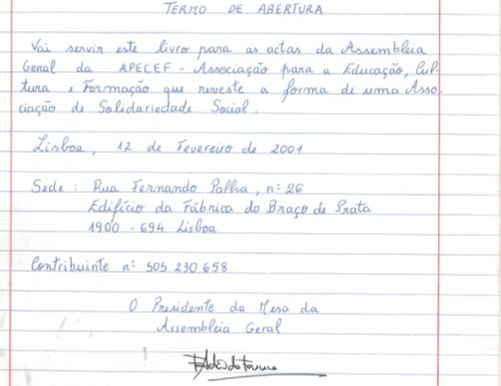 TERMO DE ABERTURA
Vai servir este livro para as actas da Assembleia
Geral da APECEF - Associação para a Educação, Cul-
tura e Formação que reveste a forma de uma Asso-
ciação de Solidariedade Social.
Lisboa, 12 de Fevereiro de 2001
Sede: Rua Fernando Palha, nº 26
Edifício da Fábrica do Braço de Prata
1900-694 Lisboa
Contribuinte nº 505 230 658
O Presidente da Mesa da
Assembleia Geral